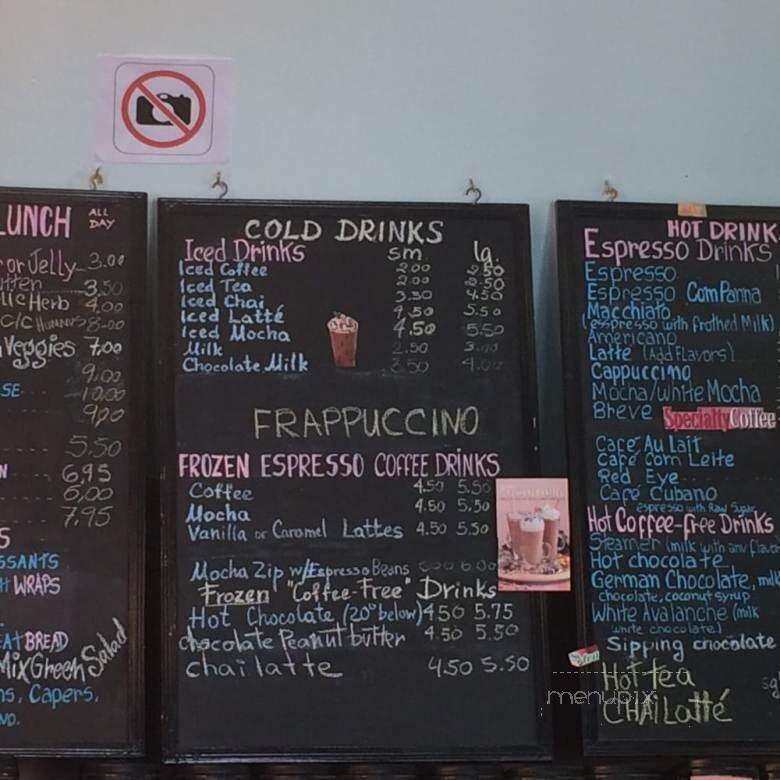 LUNCH ALL DAY
or Jelly 3.00
3.50
Herb 4.00
8.00
Veggies 7.00
9.00
SE 10.00
9.00
5.50
N 6.95
6.00
7.95
S
SSANTS
WRAPS
EAT BREAD
Mix Green Salad
ns, Capers,
NO.
COLD DRINKS
Iced Drinks sm lg.
Iced Coffee 2.00 2.50
Iced Tea 2.00 2.50
Iced Chai 3.50 4.50
Iced Latté 4.50 5.50
Iced Mocha 4.50 5.50
Milk 2.50 3.00
Chocolate Milk 3.50 4.00
FRAPPUCCINO
FROZEN ESPRESSO COFFEE DRINKS
Coffee 4.50 5.50
Mocha 4.50 5.50
Vanilla or Caramel Lattes 4.50 5.50
Mocha Zip w/Espresso Beans
Frozen "Coffee-Free" Drinks
Hot Chocolate (20° below) 4.50 5.75
chocolate Peanut butter 4.50 5.50
chai latte 4.50 5.50
HOT DRINK
Espresso Drinks
Espresso
Espresso Com Panna
Macchiato
(espresso with frothed Milk)
Americano
Latte (Add Flavors)
Cappuccino
Mocha/white Mocha
Breve Specialty Coffee
Café Au Lait
Café Com Leite
Red Eye
Café Cubano
espresso with Raw Sugar
Hot Coffee-free Drinks
Steamer (milk with any flavo
Hot chocolate
German Chocolate, milk
chocolate, coconut syrup
White Avalanche (milk
white chocolate)
Sipping chocolate
Hot tea
CHAI Latté
menupix